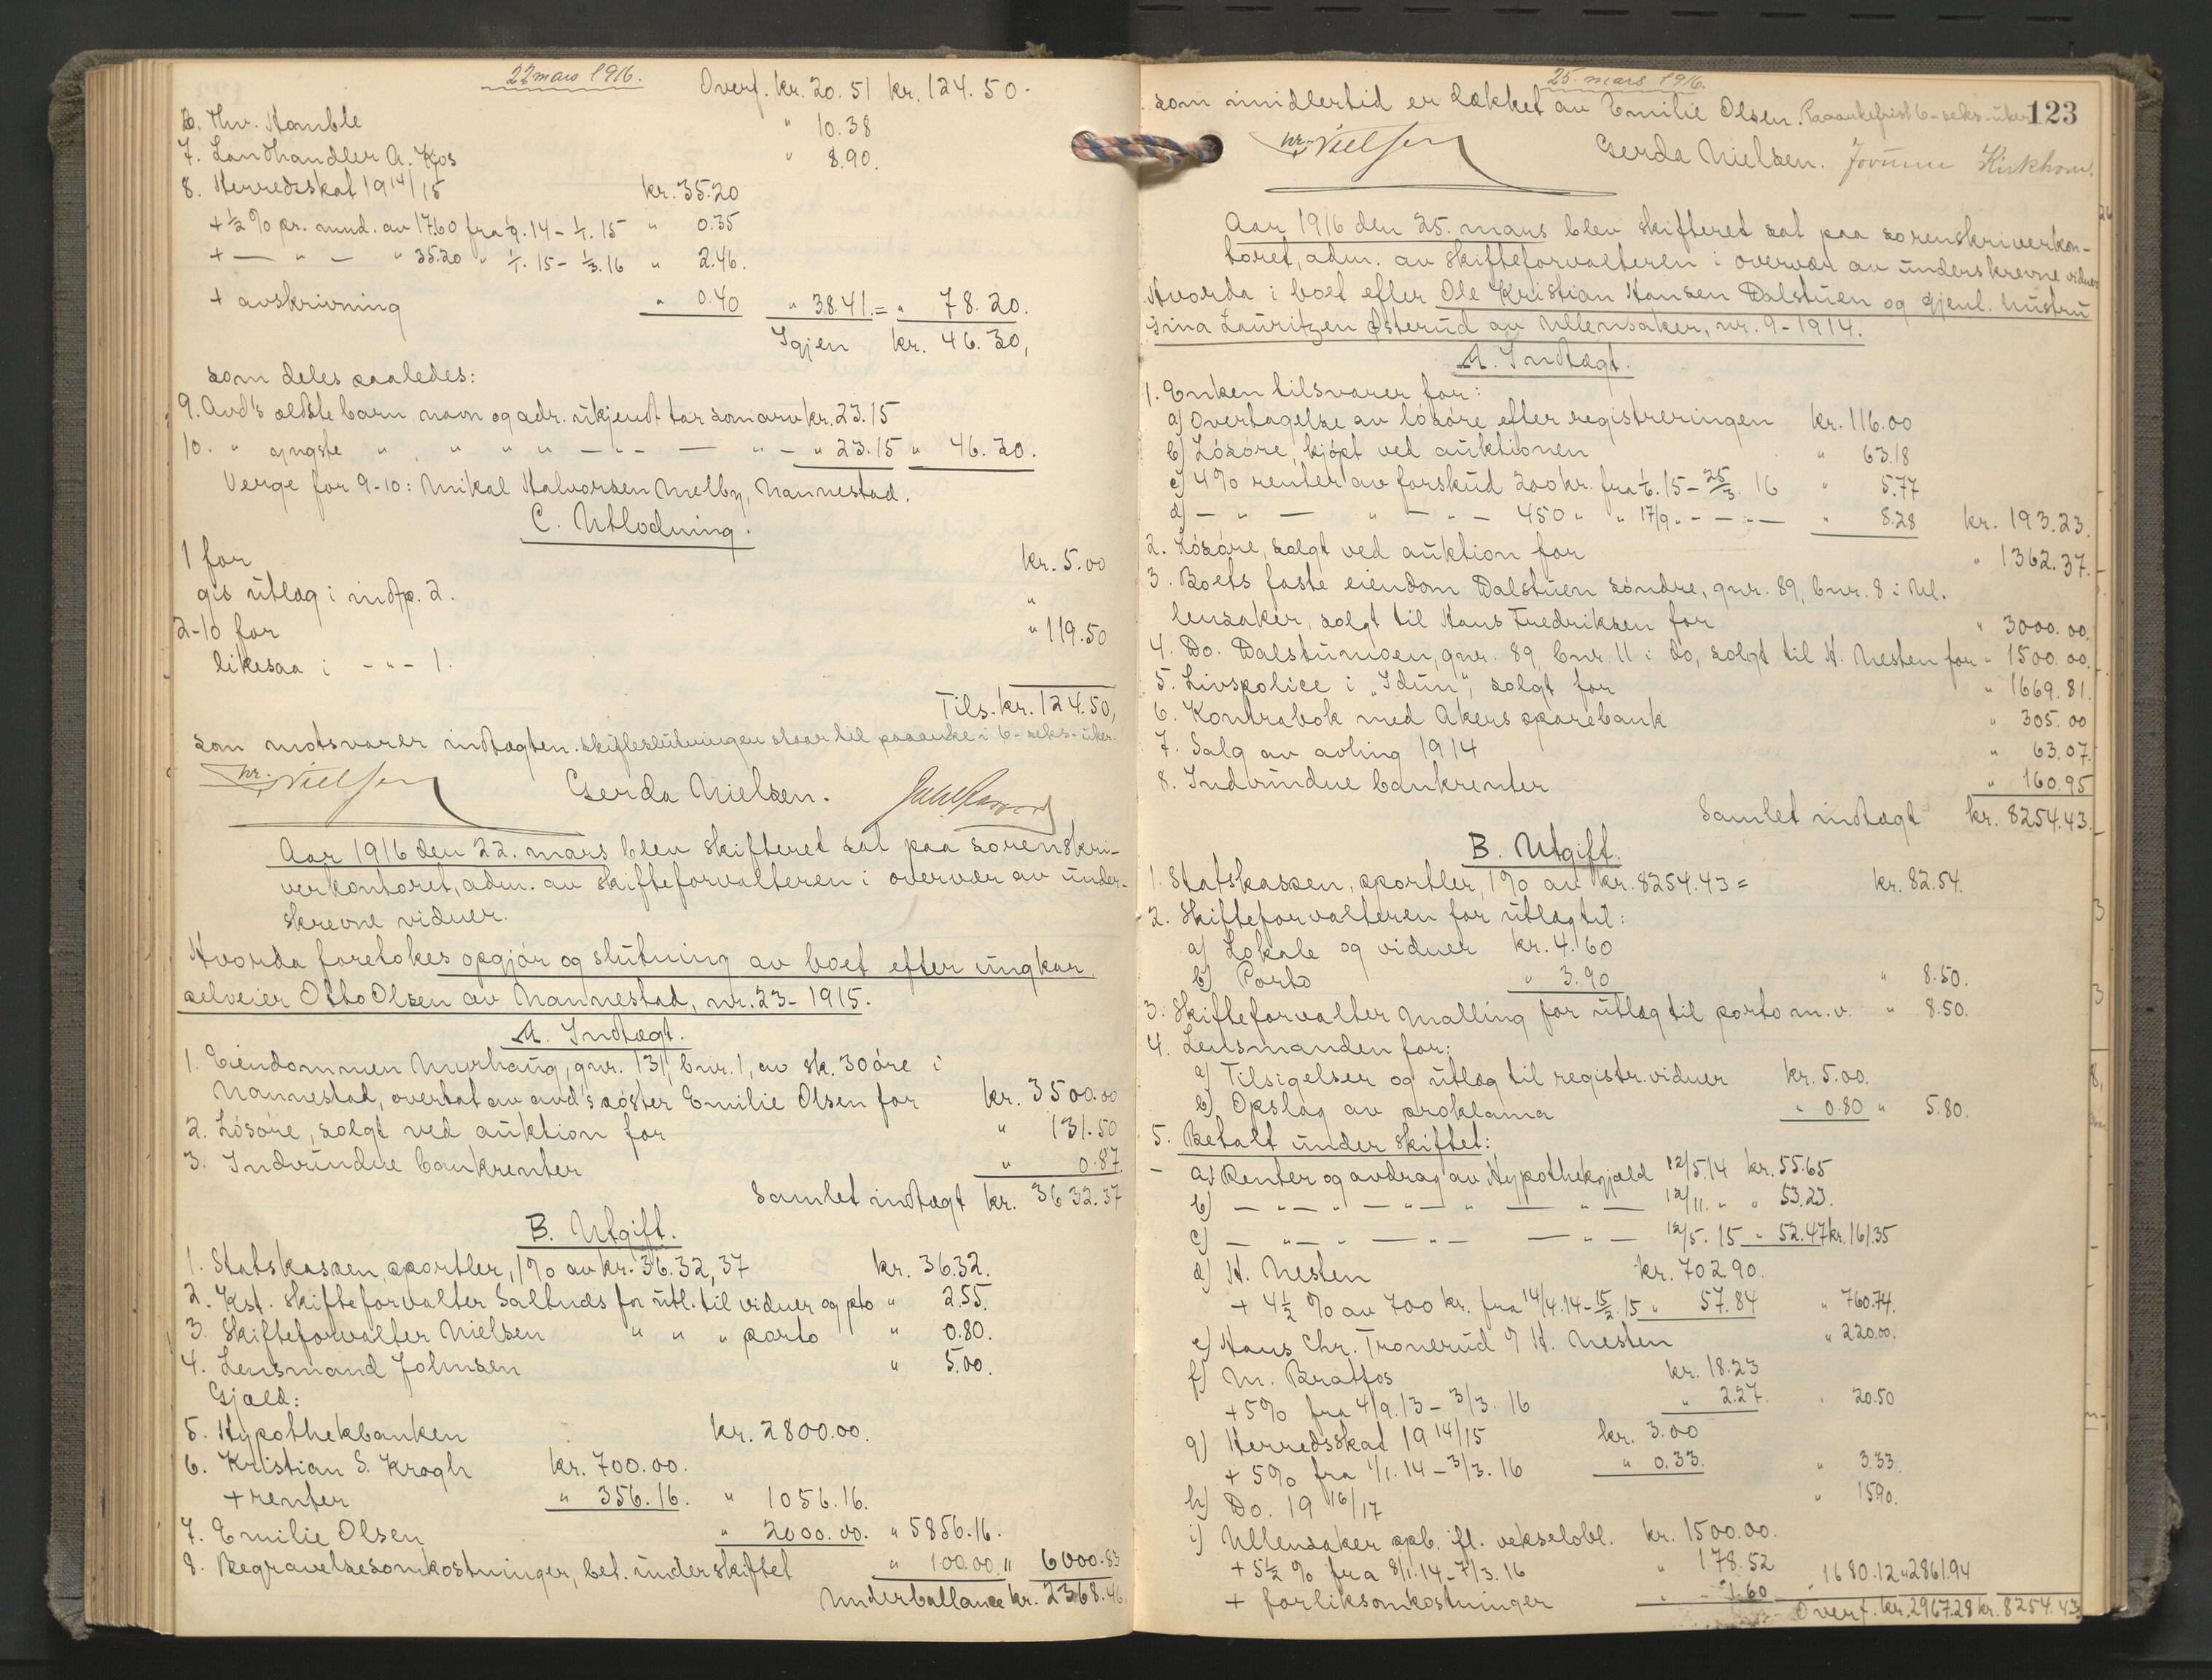 22 mars 1916.
Overf. kr. 20.51 kr. 124.50.
6. Thv. Homble " 10.38
7. Landhandler A. Kjos " 8.90.
8. Herredsskat 1914/15 kr. 35.20
+ ½ % pr. mnd. av 17.60 fra 1/9. 14 - 1/1. 15 " 0.35
+ — " — " 35.20 " 1/1. 15 - 1/3. 16 " 2.46.
+ avskrivning " 0.40 " 38.41. = " 78.20.
Igjen kr. 46.30,
som deles saaledes:
9. Avd's ældste barn navn og adr. ukjendt tar som arv kr. 23.15
10. " yngste " , " " " — " — — " — " 23.15 " 46.30.
Verge for 9-10: Mikal Halvorsen Melby, Nannestad.
C. Utlodning.
1 for kr. 5.00
gis utlæg i indtp. 2. "
2-10 for " 119.50
likesaa i - " - 1.
Tils. kr. 124.50,
som motsvarer indtægten. Skifteslutningen staar til paaanke i 6 - seks - uker.
Nielsen Gerda Nielsen.
Aar 1916 den 22. mars blev skifteret sat paa sorenskri-
verkontoret, adm. av skifteforvalteren i overvær av under-
skrevne vidner.
Hvorda foretokes opgjør og slutning av boet efter ungkar,
selveier Otto Olsen av Nannestad, nr. 23-1915.
A. Indtægt.
1. Eiendommen Murhaug, gnr. 131, bnr. 1, av sk. 30 øre i
Nannestad, overtat av avd's søster Emilie Olsen for kr. 3500.00
2. Løsøre, solgt ved auktion for " 131.50
3. Indvundne bankrenter " 0.87.
Samlet indtægt kr. 3632.37
B. Utgift.
1. Statskassen, sportler, 1 % av kr. 36.32,37 kr. 36.32.
2. Kst. skifteforvalter Saltnæs for utl. til vidner og pto " 2.55.
3. Skifteforvalter Nielsen " " " porto " 0.80.
4. Lensmand Johnsen " 5.00.
Gjæld:
5. Hypothekbanken kr. 2800.00.
6. Kristian S. Krogh kr. 700.00.
+ renter " 356.16. " 1056.16.
7. Emilie Olsen " 2000.00. " 5856.16.
8. Begravelsesomkostninger, bet. under skiftet " 100.00 " 6000.83
Underballance kr. 2368.46,
25. mars 1916.
123
som imidlertid er dækket av Emilie Olsen. Paaankefrist 6 - seks - uker
Nielsen Gerda Nielsen. Kirkhorn.
Aar 1916 den 25. mars blev skifteret sat paa sorenskriverkon-
toret, adm. av skifteforvalteren i overvær av underskrevne vidner
Hvorda i boet efter Ole Kristian Hansen Dalstuen og gjenl. hustru
Gina Lauritzen Østerud av Ullensaker, nr. 9-1914.
A. Indtægt.
1. Enken tilsvarer for:
a) Overtagelse av løsøre efter registreringen kr. 116.00
b) Løsøre, kjøpt ved auktionen " 63.18
c) 4 % renter av forskud 200 kr. fra 1/6. 15 - 25/3. 16 " 5.77
d) — " — " — " — 450 " " 17/9 " - — " — " 8.28 kr. 193.23.
2. Løsøre, solgt ved auktion for " 1362.37.
3. Boets faste eiendom Dalstuen søndre, gnr. 89, bnr. 8 i Ul-
lensaker, solgt til Hans Fredriksen for " 3000.00.
4. Do. Dalstumoen, gnr. 89, bnr. 11 i do, solgt til H. Nesten for " 1500.00.
5. Livspolice i "Idun", solgt for " 1669.81.
6. Kontrabok med Akers sparebank " 305.00
7. Salg av avling 1914 " 63.07.
8. Indvundne bankrenter " 160.95
Samlet indtægt kr. 8254.43.
B. Utgift.
1. Statskassen, sportler, 1 % av kr. 8254.43 = kr. 82.54.
2. Skifteforvalteren for utlæg til:
a) Lokale og vidner kr. 4.60
b) Porto " 3.90 " 8.50.
3. Skifteforvalter Malling for utlæg til porto m.v. " 8.50.
4. Lensmanden for:
a) Tilsigelser og utlæg til registr. vidner kr. 5.00.
b) Opslag av proklama " 0.80 " 5.80.
5. Betalt under skiftet:
- a) Renter og avdrag av Hypothekgjæld 12/5.14 kr. 55.65
b) — " — " — " — " — " — 12/11. " " 53.23.
c) — " — " — " — — " — 12/5. 15 " 52.47 kr. 161.35
d) H. Nesten kr. 702.90.
+ 4½ % av 700 kr. fra 14/4.14 - 15/2.15 " 57.84 " 760.74.
e) Hans Chr. Tronerud % H. Nesten " 220.00.
f) M. Bratfos kr. 18.23
+ 5% fra 4/9.13 - 3/3. 16 " 2.27. " 20.50
g) Herredsskat 1914/15 kr. 3.00
+ 5% fra 1/1. 14 - 3/3. 16 " 0.33. " 3.33.
h) Do. 1916/17 " 15.90.
i) Ullensaker spb. ifl. vekselobl. kr. 1500.00.
+ 5½ % fra 8/1.14 - 7/3. 16 " 178.52
+ forliksomkostninger " 1.60 " 1680.12 " 2861.94
Overf. kr. 2967.28 kr. 8254.43